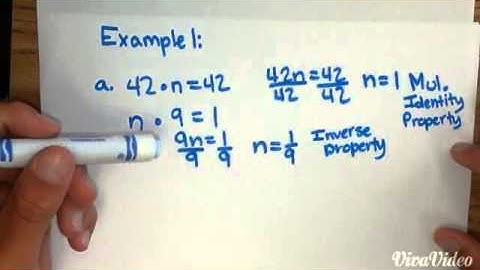 Example 1:
a. 42 • n = 42   42n/42 = 42/42   n = 1 Mul. Identity Property
n • 9 = 1
9n/9 = 1/9   n = 1/9   Inverse Property
VivaVideo